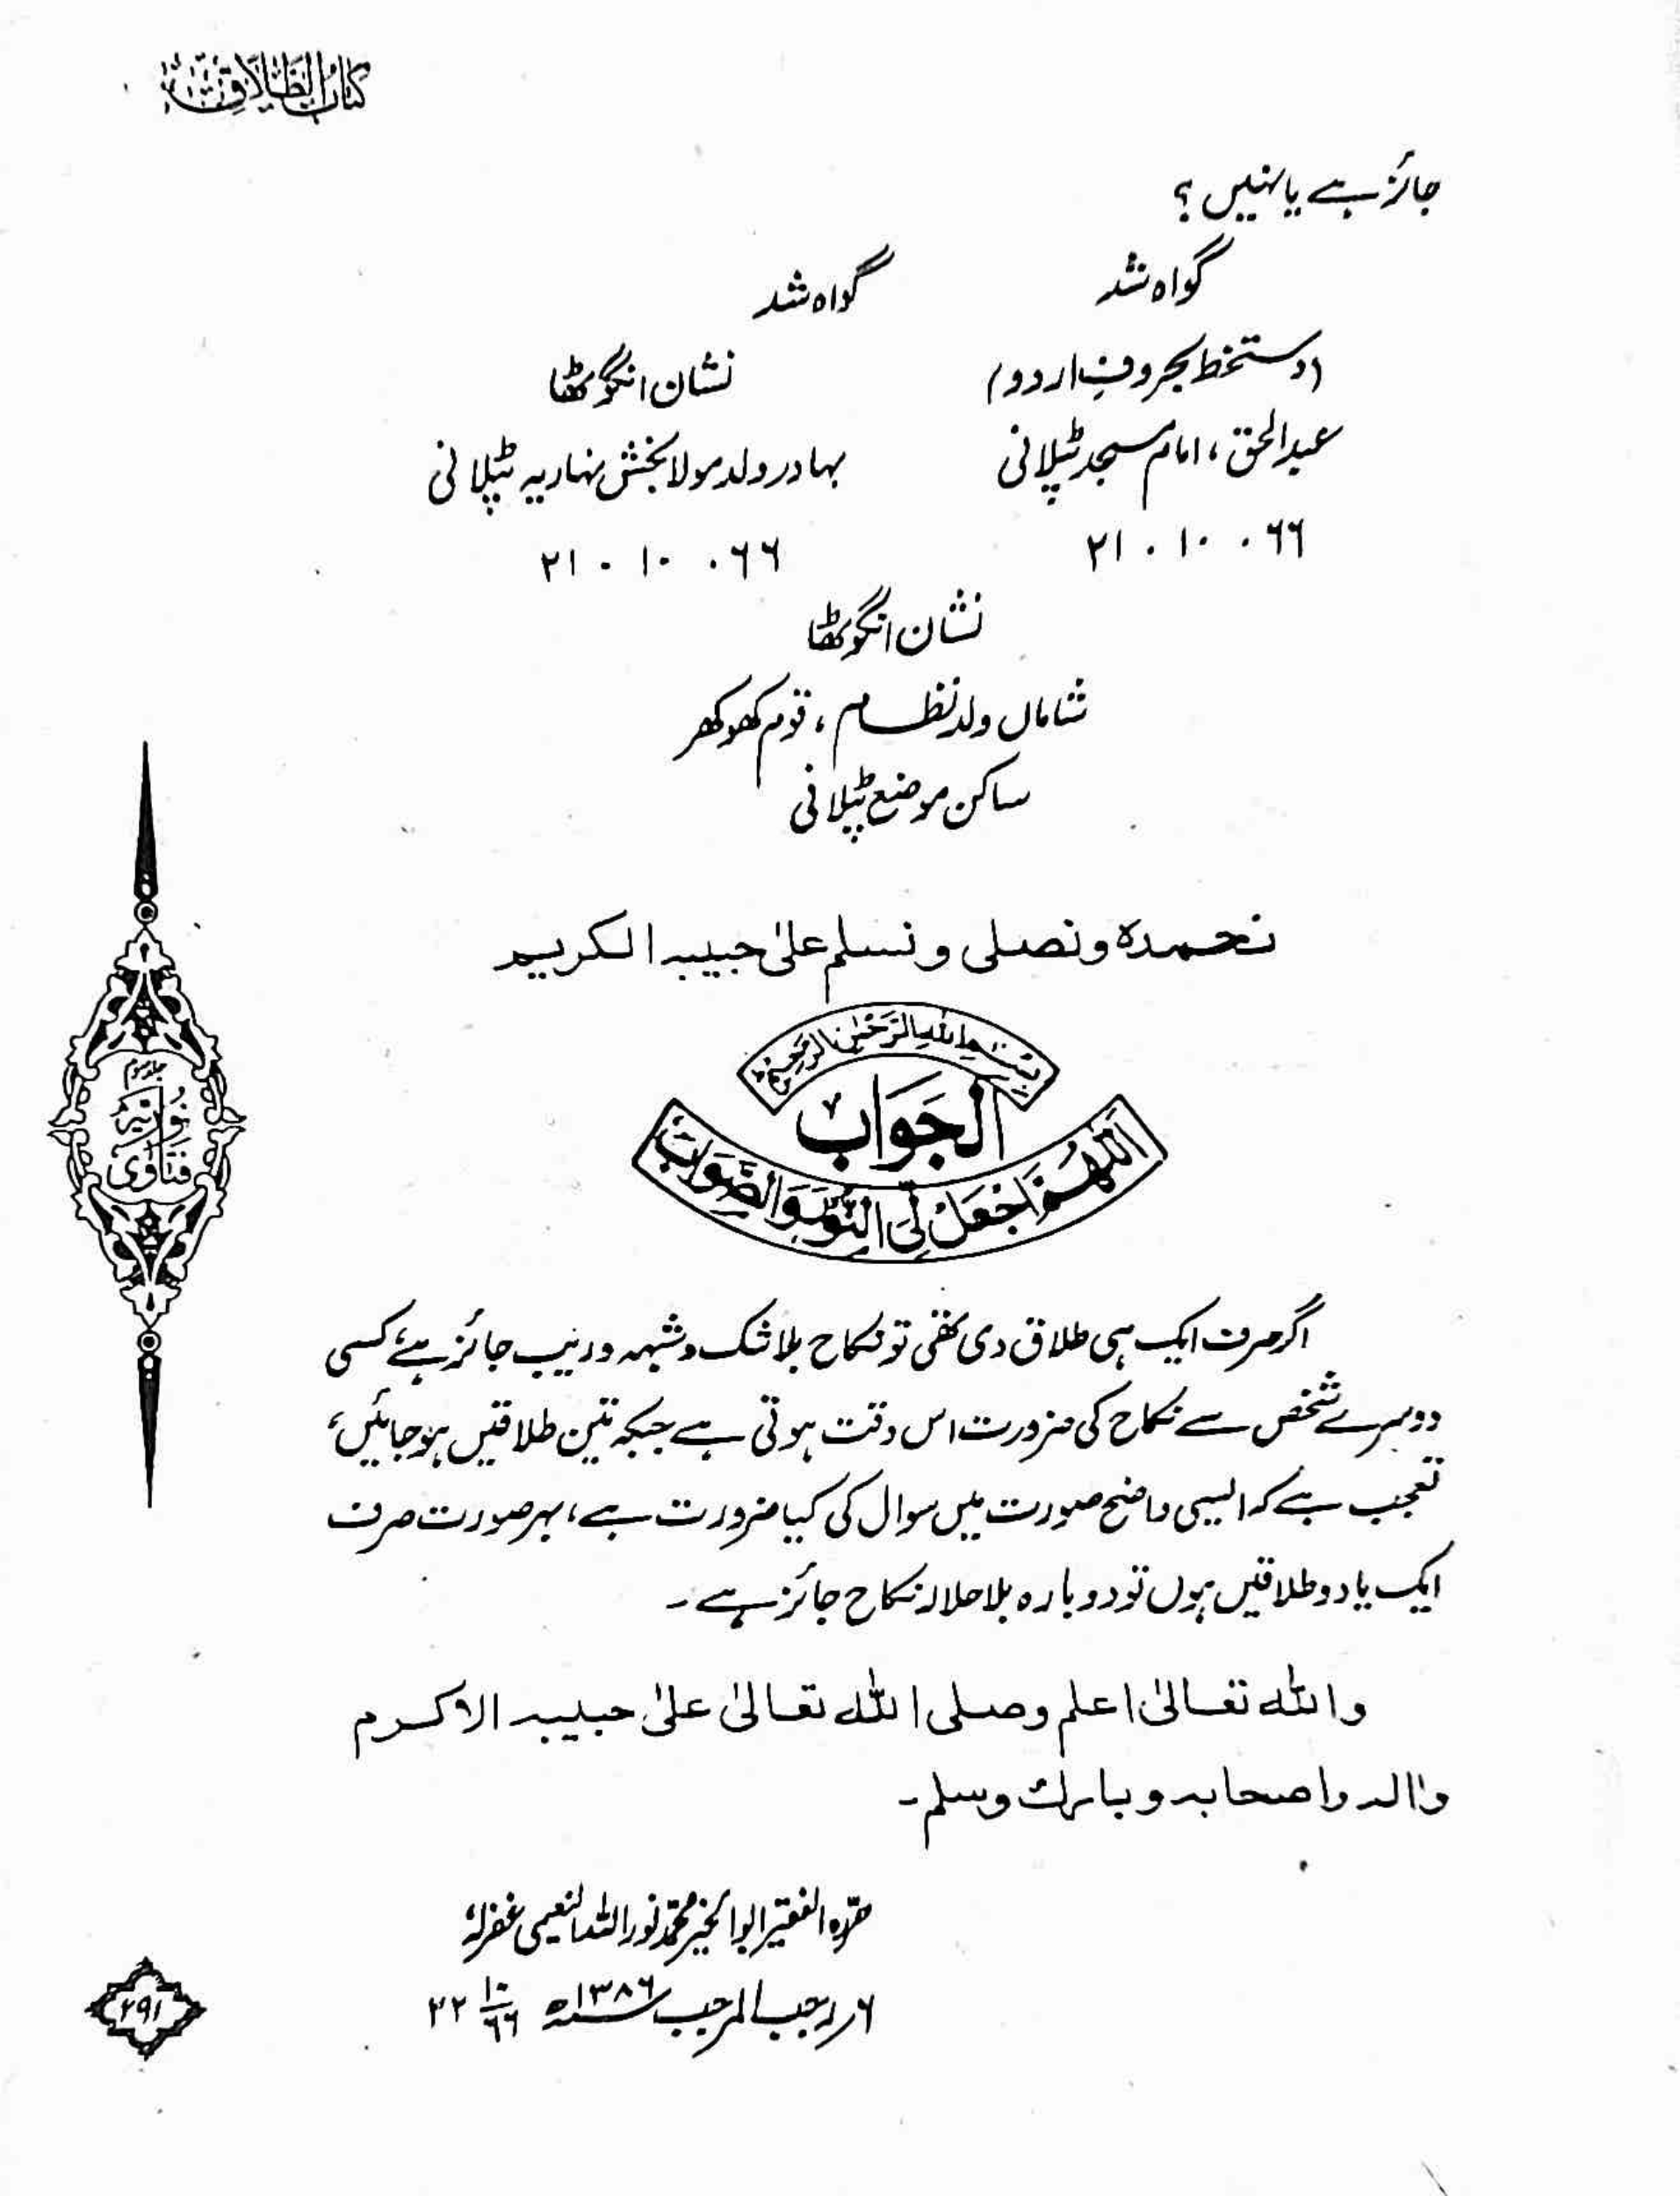 كتاب الطلاق
جائز ہے یا نہیں ؟
گواہ شد
گواہ شد
(دستخط بحروفِ اردو)
نشان انگوٹھا
عبدالحق، امام مسجد ٹپلانی
بہادر ولد مولا بخش نہاریہ ٹپلانی
۲۱ . ۱۰ . ۶۶
۲۱ . ۱۰ . ۶۶
نشان انگوٹھا
شاماں ولد نظام، قوم کھوکھر
ساکن موضع ٹپلانی
نحمدہ ونصلی ونسلم علیٰ حبیبہ الکریم
بِسْمِ اللهِ الرَّحْمٰنِ الرَّحِيْمِ
الجَوَابُ
اَللّٰهُمَّ اجْعَلْ لِّیَ النُّوْرَ وَالصَّوَابَ
جلد سوم
فتاویٰ نوریہ
اگر صرف ایک ہی طلاق دی تھی تو نکاح بلا شک و شبہہ و ریب جائز ہے، کسی
دوسرے شخص سے نکاح کی ضرورت اس وقت ہوتی ہے جبکہ تین طلاقیں ہو جائیں،
تعجب ہے کہ ایسی واضح صورت میں سوال کی کیا ضرورت ہے، بہر صورت صرف
ایک یا دو طلاقیں ہوں تو دوبارہ بلا حلالہ نکاح جائز ہے۔
واللہ تعالیٰ اعلم وصلی اللہ تعالیٰ علیٰ حبیبہ الاکرم
واٰلہ واصحابہ وبارك وسلم۔
حرّرہ الفقیر ابوالخیر محمّد نور اللہ النعیمی غفرلہٗ
۶ر رجب المرجب سنہ ۱۳۸۶ھ ۲۲ ۱۰/۶۶
۲۹۱